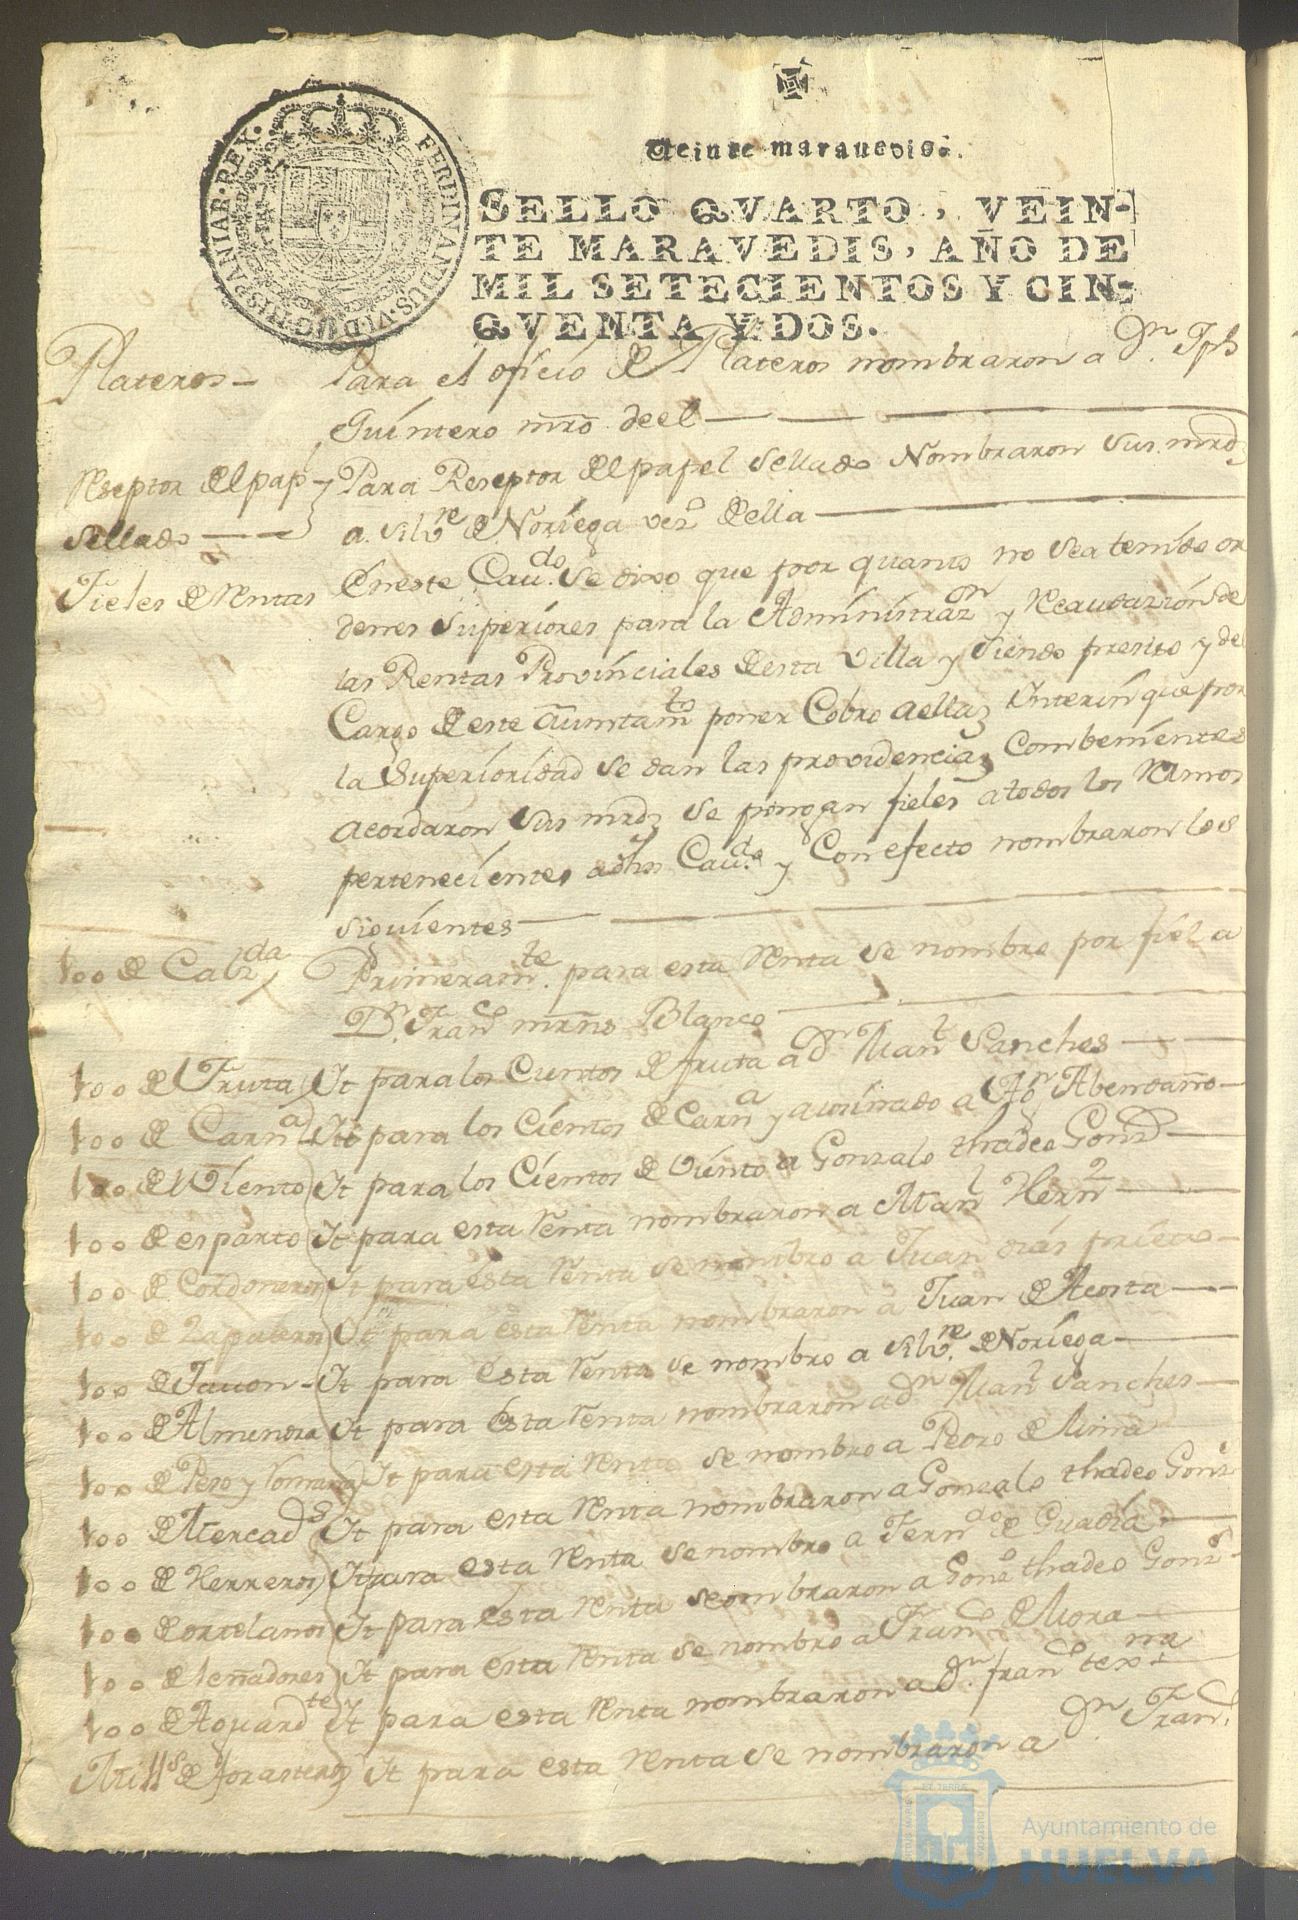 FERDINANDUS·VI·D·G·HISPANIAR·REX·
Veinte maravedis.
SELLO QVARTO, VEIN-
TE MARAVEDIS, AÑO DE
MIL SETECIENTOS Y CIN-
QVENTA Y DOS.
Plateros— Para el oficio de Plateros nombraron a Dn. Jph
Quintero mro. de el
Reseptor del pap. Para Reseptor del papel sellado Nombraron sus mrds
sellado a. Silvre de Noriega vezo della
Fieles de Rentas En este Cavdo. se dixo que por quanto no sea tenido or
denes superiores para la Administrazon y Recaudazion de
las Rentas Provinciales desta Villa y siendo presiso y del
Cargo de este Aiuntamto poner Cobro aellas Interin que por
la Superioridad se dan las providencias Combenientes
acordaron sus mrds se pongan fieles a todos los Ramos
pertenecientes a dho Cavdo. y Con efecto nombraron los
siguientes
100 de Primeramte. para esta renta se nombro por fiel a
Dn. Franco mrns Blanco
100 de Fruta It para los Cientos de fruta a Dn Manl Sanches
100 de Carna It para los Cientos de Carna y a Abendaño
100 de Viento It para los Cientos de Viento a Gonzalo thadeo Gonz
100 de esparto It para esta renta nombraron a Manl Hernz
100 de Cordoneros It para esta renta se nombro a Juan dias prieto
100 de Zapateros It para esta renta nombraron a Juan de Acosta
100 de Javon It para esta renta se nombro a Silvre. de Noriega
100 de Almendra It para esta renta nombraron a Dn Manl Sanches
100 de Peso y Romana It para esta renta se nombro a Pedro de
100 de Mercads It para esta renta nombraron a Gonzalo thadeo Gonz
100 de Herreros It para esta renta se nombro a Ferndo de
100 de ortelanos It para esta renta seombraron a Gono thadeo Gonz
100 de leñadores It para esta renta se nombro a Franco de Mora
100 de Aguardte It para esta renta nombraron a Dn. Franco
de forasteros It para esta renta se nombraron a Dn Franco
Ayuntamiento de
HUELVA